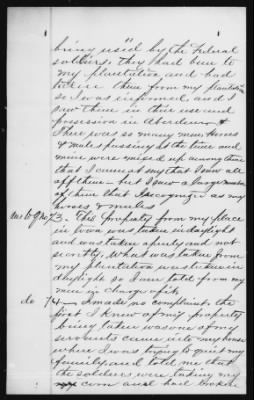 11
being used by the Federal
soldiers. they had been to
my plantation and had
taken them from my plantation
so I was informed, and I
saw them in their use and
possession in Aberdeen &
There was so many mem horses
& mules passing at the time and
mine were mixed up among them
that I cannot say that I saw all
of them - but I saw a large number
of them that I recognized as my
horses & mules
73. - The property from my place
in town was taken in daylight
and was taken openly and not
secretly, what was taken from
my plantation was taken in
daylight so I am told from my
men in charge of it
do 74 - I made no complaint. the
first I knew of my property
being taken was one of my
servants came into my house
where I was trying to quiet my
family, and told me that
the soldiers were taking my
corn and had broken